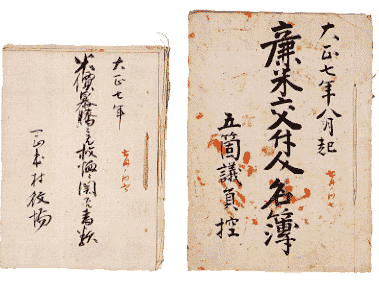 大正七年八月起
廉米交付人名簿
五箇議員控
大正七年
米價暴騰ニ
関スル書類
村役場